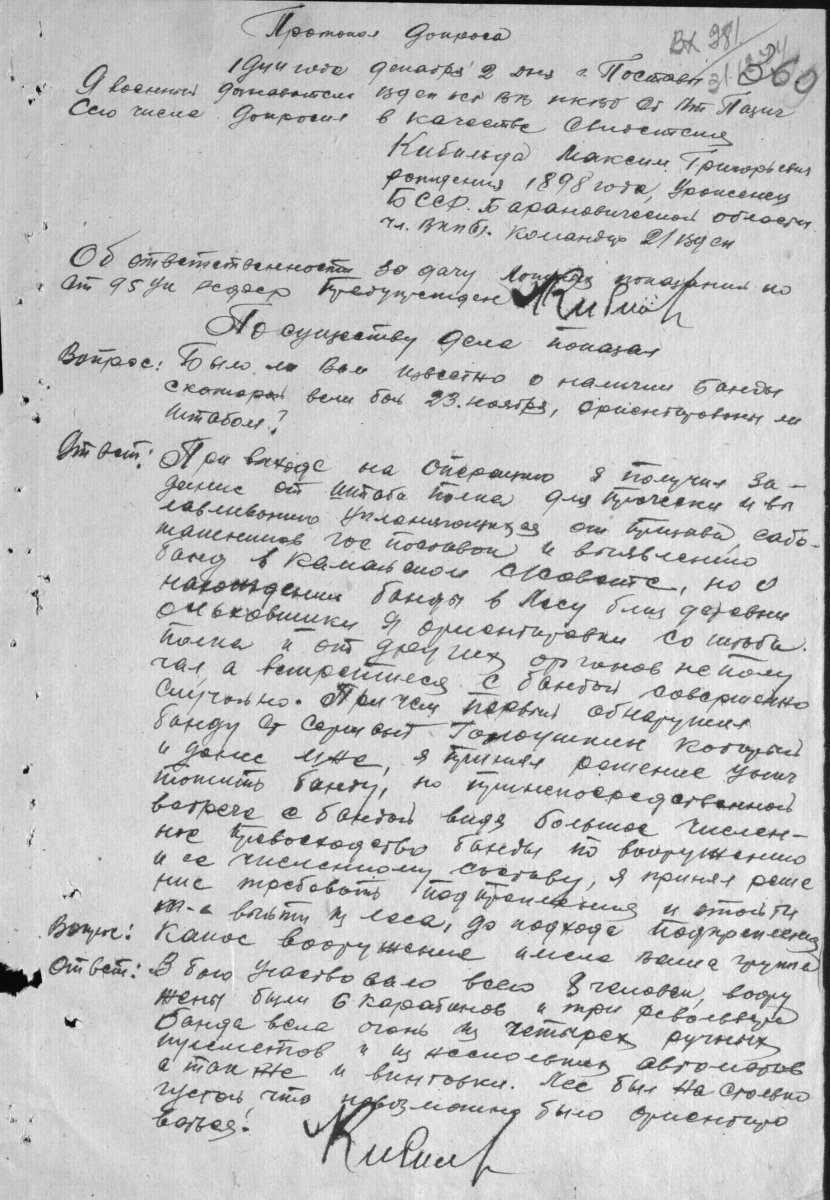 Протокол допроса
Вх 381
360
1944 года декабря 2 дня г. Поставы
Я военный дознаватель ВВ НКВД Ст Лт
Сего числа допросил в качестве свидетеля
Максим Григорьевич
рождения 1898 года, уроженец
БССР. Барановической области
чл. ВКПб. командир 2/
Об ответственности за дачу ложных показаний по
ст 95 УК РСФСР предупрежден
По существу дела показал
Вопрос: Было ли Вам известно о наличии банды
с которой вели бой 23. ноября, ориентированы ли
штабом?
Ответ: При выходе на операцию я получил за-
дание от штаба полка для прочески и вы
лавливанию уклоняющихся от призыва, сабо-
тажников гос поставок и выявлению
банд в Камайском с/совете, но о
нахождении банды в лесу близ деревни
Ольховщики я ориентировки со штаба
полка и от других органов не полу
чал, а встретился с бандой совершенно
случайно. Причем первый обнаружил
банду Ст сержант который
и донес мне, я принял решение унич
тожить банду, но при непосредственной
встрече с бандой видя большое числен-
ное превосходство банды по вооружению
и ее численному составу, я принял реше
ние требовать подкрепления и отойти
т-е выйти из леса, до подхода подкрепления
Вопрос: Какое вооружение имела ваша группа
Ответ: В бою участвовало всего 8 человек, воору
жены были 6 карабинов и три револьвера
Банда вела огонь из четырех ручных
пулеметов и из нескольких автоматов
а так же и винтовки. Лес был на столько
густой что невозможно было ориентиро
ваться.